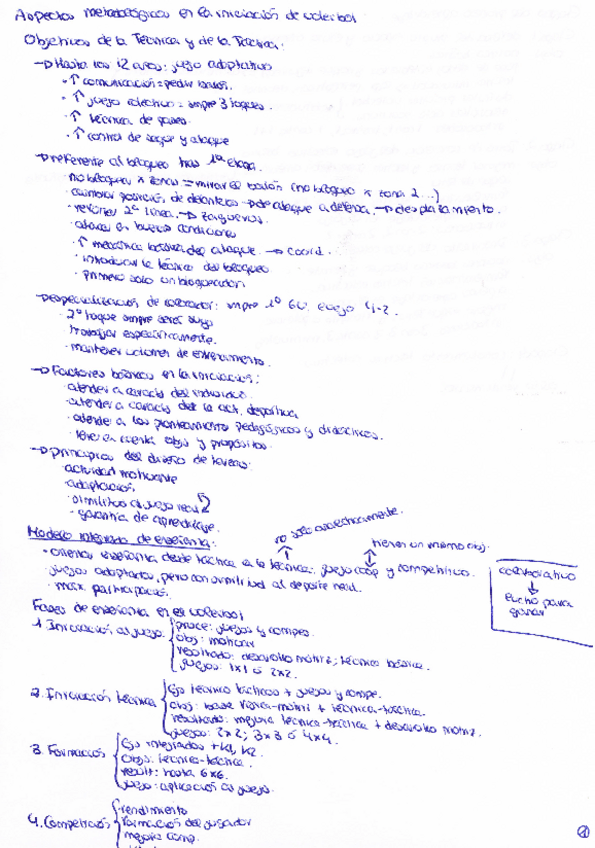 Aspectos metodológicos en la iniciación de voleibol
Objetivos de la Técnica y de la Táctica:
→ Hasta los 12 años: juego adaptativo
· ↑ comunicación = pedir balón.
· ↑ juego colectivo = smpre 3 toques.
· ↑ técnica de pases.
· ↑ control de saque y ataque
→ referente al bloqueo tras 1ª etapa.
no bloqueo x zonas = mirar el balón (no bloqueo x zona 2...)
· cambiar posición de delanteros → de ataque a defensa. → desplazamiento.
· 2ª línea. → zagueros.
· atacar en buenas condiciones
· ↑ mecánica del ataque → coord.
· introducir la técnica del bloqueo
· primero solo un bloqueador.
→ especialización de colocador: smpre 1º 6:6, luego 4-2.
· 2º toque smpre será suyo
· trabajar específicamente.
· mantener volumen de entrenamiento.
→ Factores básicos en la iniciación:
· atender a caracts del individuo.
· atender a caracts de la act. deportiva
· atender a los planteamientos pedagógicos y didácticos.
· tener en cuenta objs y propósitos.
→ principios del diseño de tareas:
· actividad motivante
· adaptación.
· similitud al juego real
· garantía de aprendizaje.
no solo analíticamente.
Modelo integrado de enseñanza:
tienen un mismo obj.
· orientar enseñanza desde táctica a la técnica: juego coop y competitivo.
· juegos adaptados, pero con similitud al deporte real.
· máx. participación.
colaborativo
↓
lucho para
ganar
Fases de enseñanza en el voleibol
1. Iniciación al juego.
proce: juegos y compes.
obj: motivar
resultado: desarrollo motriz; técnica básica.
juegos: 1x1 o 2x2.
2. Iniciación técnica
Ejs técnico tácticos + juegos y compe.
obj: base física-motriz + técnica-táctica.
resultado: mejora técnica-táctica + desarrollo motriz.
juegos: 2x2; 3x3 o 4x4.
3. Formación
Ejs integrados + K1, K2.
objs: técnica-táctica.
result: hasta 6x6.
juego: aplicación al juego.
4. Competición
· rendimiento
formación del jugador
mejora comp.